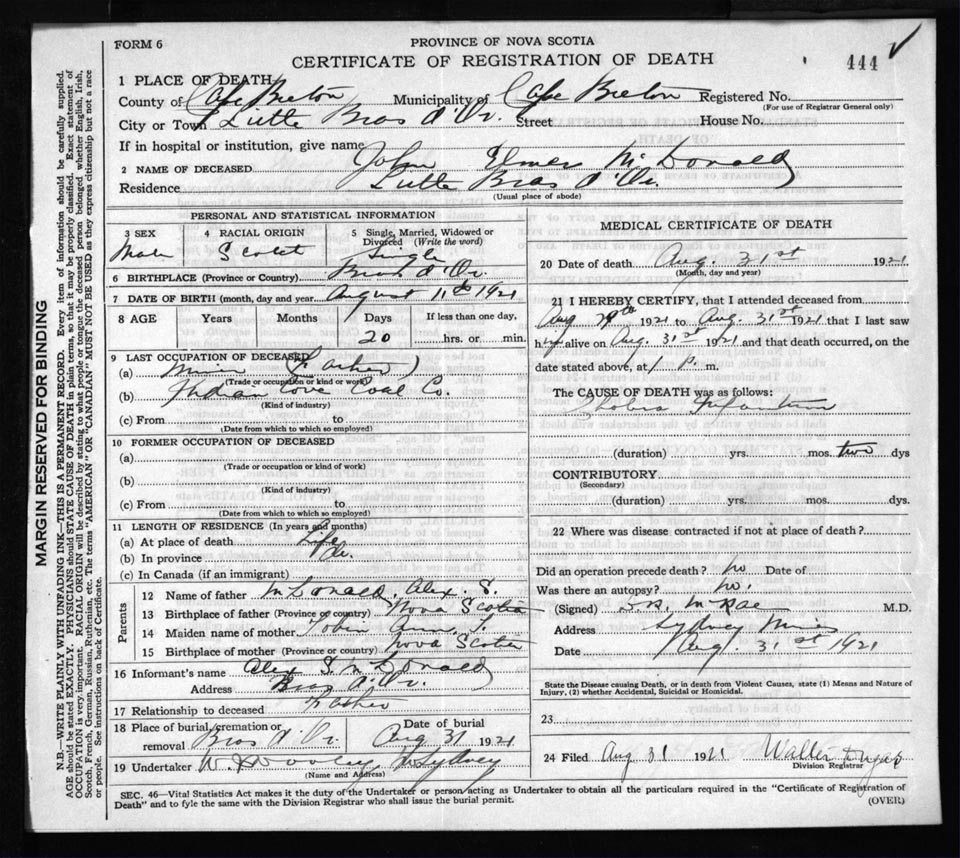 FORM 6
PROVINCE OF NOVA SCOTIA
CERTIFICATE OF REGISTRATION OF DEATH
444
MARGIN RESERVED FOR BINDING
N.B.—WRITE PLAINLY WITH UNFADING INK—THIS IS A PERMANENT RECORD. Every item of information should be carefully supplied.
AGE should be stated EXACTLY. PHYSICIANS should STATE CAUSE OF DEATH in plain terms, so that it may be properly classified. Exact statement of
OCCUPATION is very important. RACIAL ORIGIN will be described by stating to what people or tongue the deceased person belonged whether English, Irish,
Scotch, French, German, Russian, Ruthenian, etc. The terms "AMERICAN" OR "CANADIAN" MUST NOT BE USED as they express citizenship but not a race
or people. See instructions on back of Certificate.
1 PLACE OF DEATH
County of Cape Breton Municipality of Cape Breton Registered No.
(For use of Registrar General only)
City or Town Little Bras d'Or. Street House No.
If in hospital or institution, give name
2 NAME OF DECEASED John Elmer McDonald
Residence Little Bras d'Or.
(Usual place of abode)
PERSONAL AND STATISTICAL INFORMATION
3 SEX Male
4 RACIAL ORIGIN Scotch
5 Single, Married, Widowed or Divorced (Write the word) Single
6 BIRTHPLACE (Province or Country) Bras d'Or.
7 DATE OF BIRTH (month, day and year August 11th 1921
8 AGE Years Months Days If less than one day,
20 hrs. or min.
9 LAST OCCUPATION OF DECEASED
(a) Miner (Father)
(Trade or occupation or kind or work)
(b) Indian Cove Coal Co.
(Kind of industry)
(c) From to
(Date from which to which so employed)
10 FORMER OCCUPATION OF DECEASED
(a)
(Trade or occupation or kind of work)
(b)
(Kind of industry)
(c) From to
(Date from which to which so employed)
11 LENGTH OF RESIDENCE (In years and months)
(a) At place of death Life
(b) In province Do.
(c) In Canada (if an immigrant)
Parents
12 Name of father McDonald, Alex. S.
13 Birthplace of father (Province or country) Nova Scotia
14 Maiden name of mother Tobin Ann
15 Birthplace of mother (Province or country) Nova Scotia
16 Informant's name Alex S McDonald
Address Bras d'Or.
17 Relationship to deceased Father
18 Place of burial, cremation or removal Bras d'Or Date of burial Aug 31 1921
19 Undertaker N Sydney
(Name and Address)
MEDICAL CERTIFICATE OF DEATH
20 Date of death Aug. 31st 1921
(Month, day and year)
21 I HEREBY CERTIFY, that I attended deceased from
Aug 1921 to Aug. 31st 1921 that I last saw
h alive on Aug. 31st 1921 and that death occurred, on the
date stated above, at p. m.
The CAUSE OF DEATH was as follows:
Cholera Infantum
(duration) yrs. mos. two dys
CONTRIBUTORY
(Secondary)
(duration) yrs. mos. dys.
22 Where was disease contracted if not at place of death?
Did an operation precede death? no Date of
Was there an autopsy? no.
(Signed) McRae M.D.
Address Sydney Mines
Date Aug. 31st 1921
State the Disease causing Death, or in death from Violent Causes, state (1) Means and Nature of
Injury, (2) whether Accidental, Suicidal or Homicidal.
23
24 Filed Aug 31 1921 Walter Dugas
Division Registrar
SEC. 46—Vital Statistics Act makes it the duty of the Undertaker or person acting as Undertaker to obtain all the particulars required in the "Certificate of Registration of
Death" and to fyle the same with the Division Registrar who shall issue the burial permit.
(OVER)